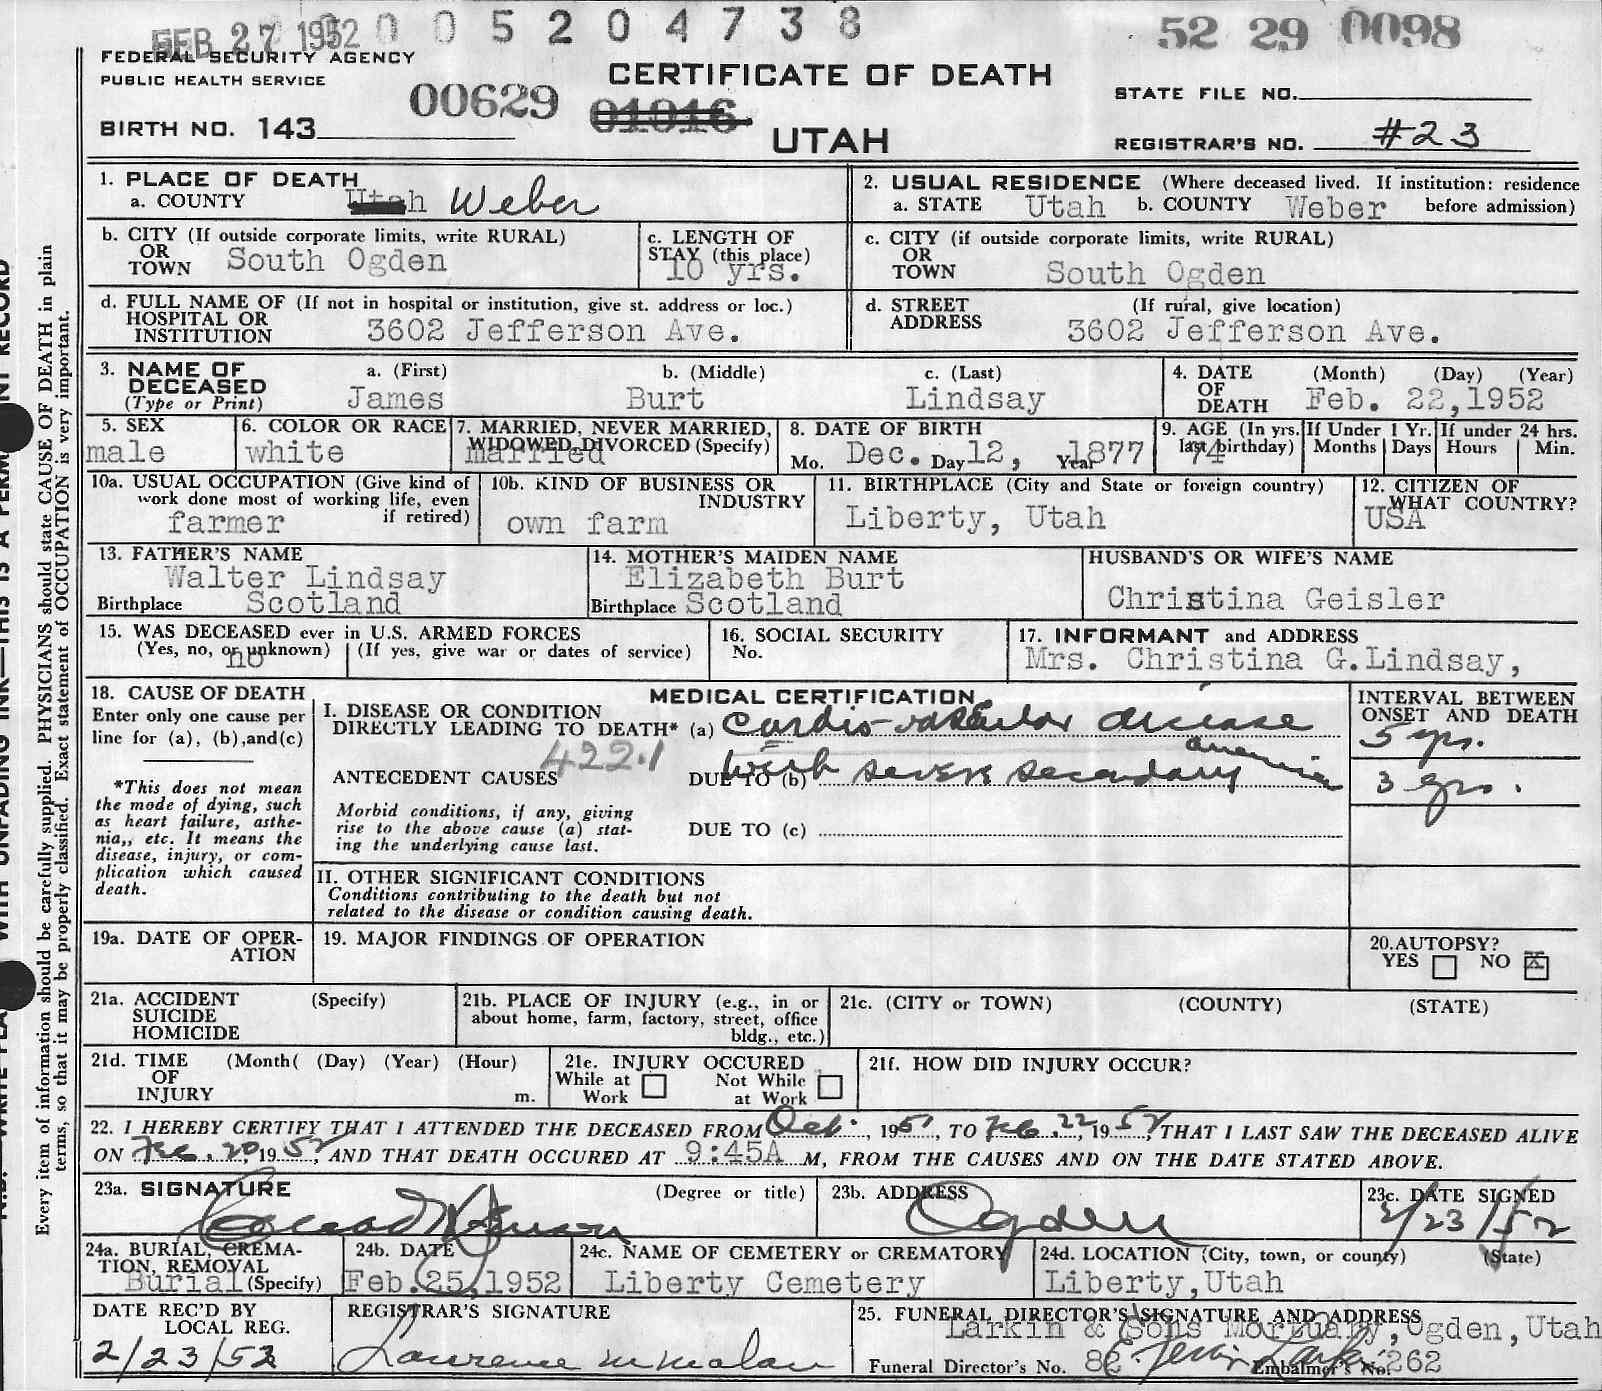 FEB 27 1952 0 0 5 2 0 4 7 3 8
52 29 0098
FEDERAL SECURITY AGENCY
PUBLIC HEALTH SERVICE
CERTIFICATE OF DEATH
STATE FILE NO.
00629 01016
BIRTH NO. 143
UTAH
REGISTRAR'S NO. #23
1. PLACE OF DEATH
a. COUNTY Utah Weber
2. USUAL RESIDENCE (Where deceased lived. If institution: residence
a. STATE Utah b. COUNTY Weber before admission)
b. CITY (If outside corporate limits, write RURAL)
OR
TOWN South Ogden
c. LENGTH OF
STAY (this place)
10 yrs.
c. CITY (if outside corporate limits, write RURAL)
OR
TOWN South Ogden
d. FULL NAME OF (If not in hospital or institution, give st. address or loc.)
HOSPITAL OR
INSTITUTION 3602 Jefferson Ave.
d. STREET (If rural, give location)
ADDRESS 3602 Jefferson Ave.
3. NAME OF a. (First) b. (Middle) c. (Last)
DECEASED
(Type or Print) James Burt Lindsay
4. DATE (Month) (Day) (Year)
OF
DEATH Feb. 22,1952
5. SEX
male
6. COLOR OR RACE
white
7. MARRIED, NEVER MARRIED,
WIDOWED, DIVORCED (Specify)
married
8. DATE OF BIRTH
Mo. Dec. Day 12, Year 1877
9. AGE (In yrs. last birthday)
74
If Under 1 Yr.
Months Days
If under 24 hrs.
Hours Min.
10a. USUAL OCCUPATION (Give kind of
work done most of working life, even
if retired)
farmer
10b. KIND OF BUSINESS OR
INDUSTRY
own farm
11. BIRTHPLACE (City and State or foreign country)
Liberty, Utah
12. CITIZEN OF
WHAT COUNTRY?
USA
13. FATHER'S NAME
Walter Lindsay
Birthplace Scotland
14. MOTHER'S MAIDEN NAME
Elizabeth Burt
Birthplace Scotland
HUSBAND'S OR WIFE'S NAME
Christina Geisler
15. WAS DECEASED ever in U.S. ARMED FORCES
(Yes, no, or unknown) (If yes, give war or dates of service)
no
16. SOCIAL SECURITY
No.
17. INFORMANT and ADDRESS
Mrs. Christina G.Lindsay,
18. CAUSE OF DEATH
Enter only one cause per
line for (a), (b),and(c)
*This does not mean
the mode of dying, such
as heart failure, asthe-
nia,, etc. It means the
disease, injury, or com-
plication which caused
death.
MEDICAL CERTIFICATION
I. DISEASE OR CONDITION
DIRECTLY LEADING TO DEATH* (a) Cardio-vascular disease
422.1
ANTECEDENT CAUSES DUE TO (b) with severe secondary anemia
Morbid conditions, if any, giving
rise to the above cause (a) stat-
ing the underlying cause last.
DUE TO (c)
INTERVAL BETWEEN
ONSET AND DEATH
5 yrs.
3 yrs.
II. OTHER SIGNIFICANT CONDITIONS
Conditions contributing to the death but not
related to the disease or condition causing death.
19a. DATE OF OPER-
ATION
19. MAJOR FINDINGS OF OPERATION
20. AUTOPSY?
YES NO X
21a. ACCIDENT (Specify)
SUICIDE
HOMICIDE
21b. PLACE OF INJURY (e.g., in or
about home, farm, factory, street, office
bldg., etc.)
21c. (CITY or TOWN) (COUNTY) (STATE)
21d. TIME (Month( (Day) (Year) (Hour)
OF
INJURY m.
21e. INJURY OCCURED
While at Work Not While at Work
21f. HOW DID INJURY OCCUR?
22. I HEREBY CERTIFY THAT I ATTENDED THE DECEASED FROM Oct., 1951, TO Feb. 22, 1952, THAT I LAST SAW THE DECEASED ALIVE
ON Feb. 20, 1952, AND THAT DEATH OCCURED AT 9:45A M, FROM THE CAUSES AND ON THE DATE STATED ABOVE.
23a. SIGNATURE (Degree or title)
23b. ADDRESS
Ogden
23c. DATE SIGNED
2/23/52
24a. BURIAL, CREMA-
TION, REMOVAL
Burial (Specify)
24b. DATE
Feb.25,1952
24c. NAME OF CEMETERY or CREMATORY
Liberty Cemetery
24d. LOCATION (City, town, or county) (State)
Liberty,Utah
DATE REC'D BY
LOCAL REG.
2/23/52
REGISTRAR'S SIGNATURE
Lawrence
25. FUNERAL DIRECTOR'S SIGNATURE AND ADDRESS
Larkin & Sons Mortuary,Ogden,Utah
Funeral Director's No. 82 Embalmer's No. 262
Every item of information should be carefully supplied. PHYSICIANS should state CAUSE OF DEATH in plain
terms, so that it may be properly classified. Exact statement of OCCUPATION is very important.